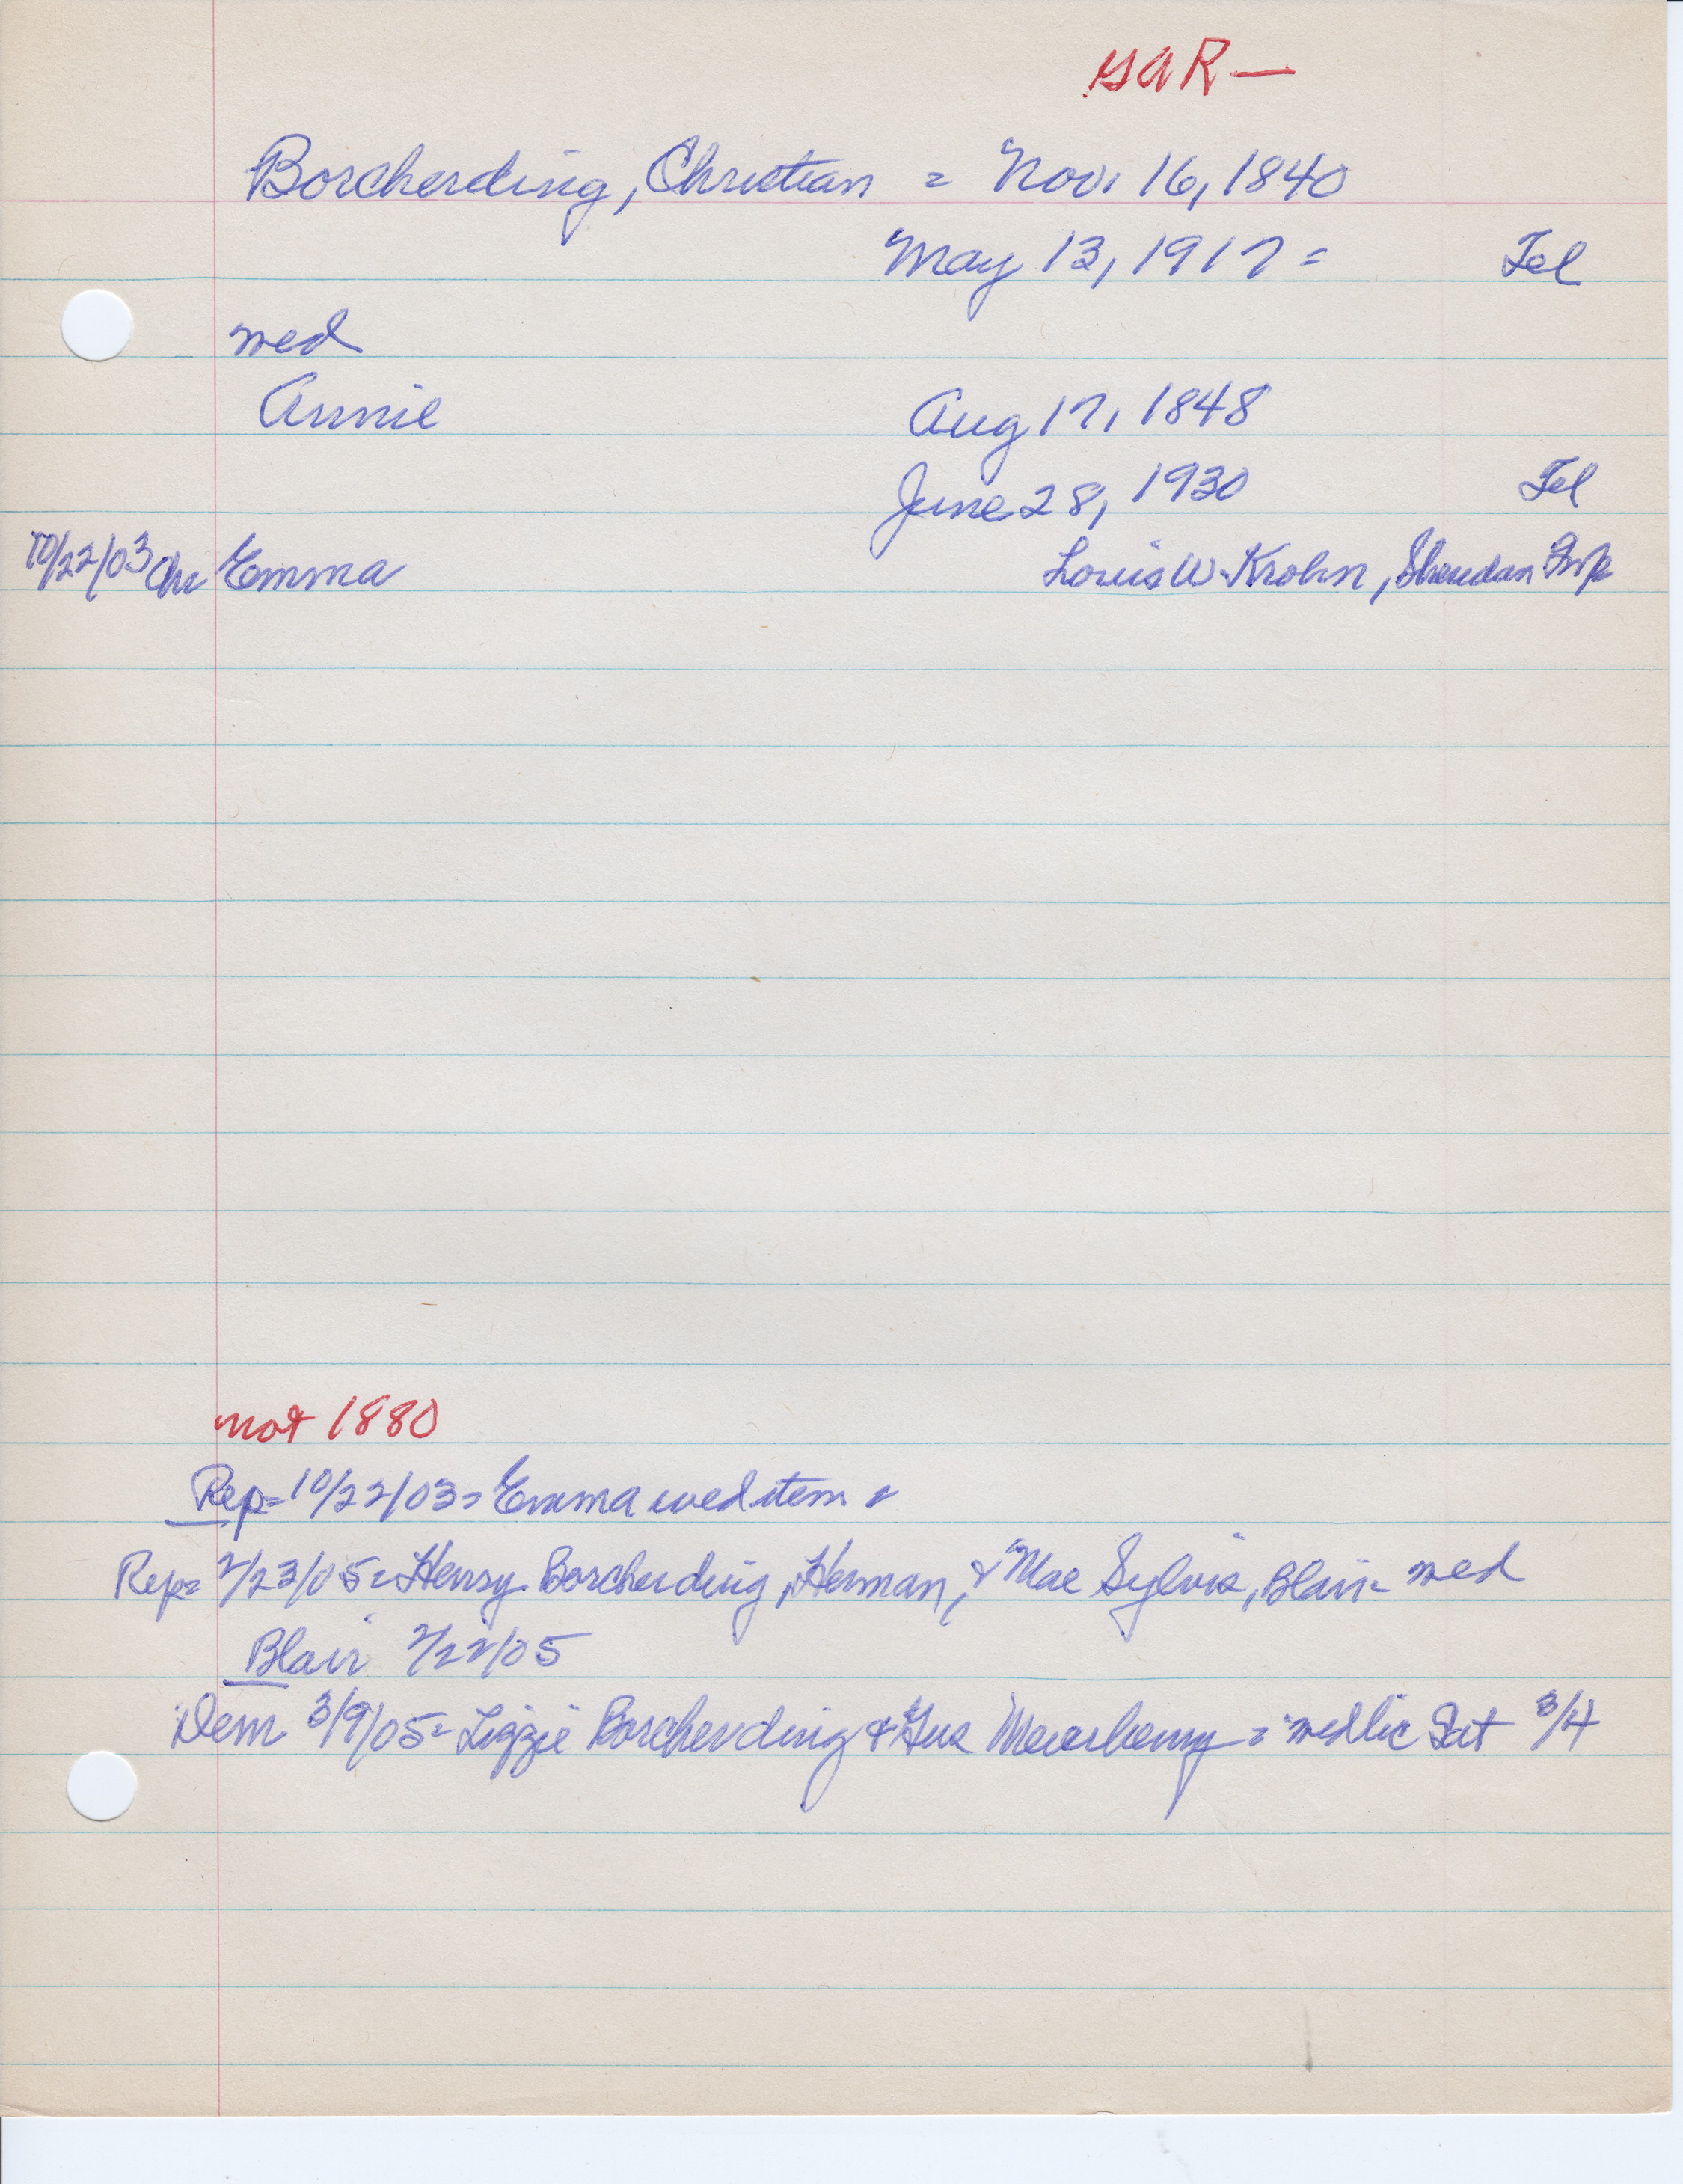 GAR —
Borcherding, Christian = Nov. 16, 1840
May 13, 1917 = Tel
wed
Annie Aug 17, 1848
June 28, 1930 Tel
10/22/03 Emma Louis W. Krohn, Sheridan Twp
not 1880
Rep= 10/22/03= Emma wed item
Rep= 2/23/05= Henry Borcherding, Herman, & Mae Sylvis, Blair= wed
Blair 2/22/05
Dem 3/9/05= Lizzie Borcherding & Gus = wed lic Sat 3/4